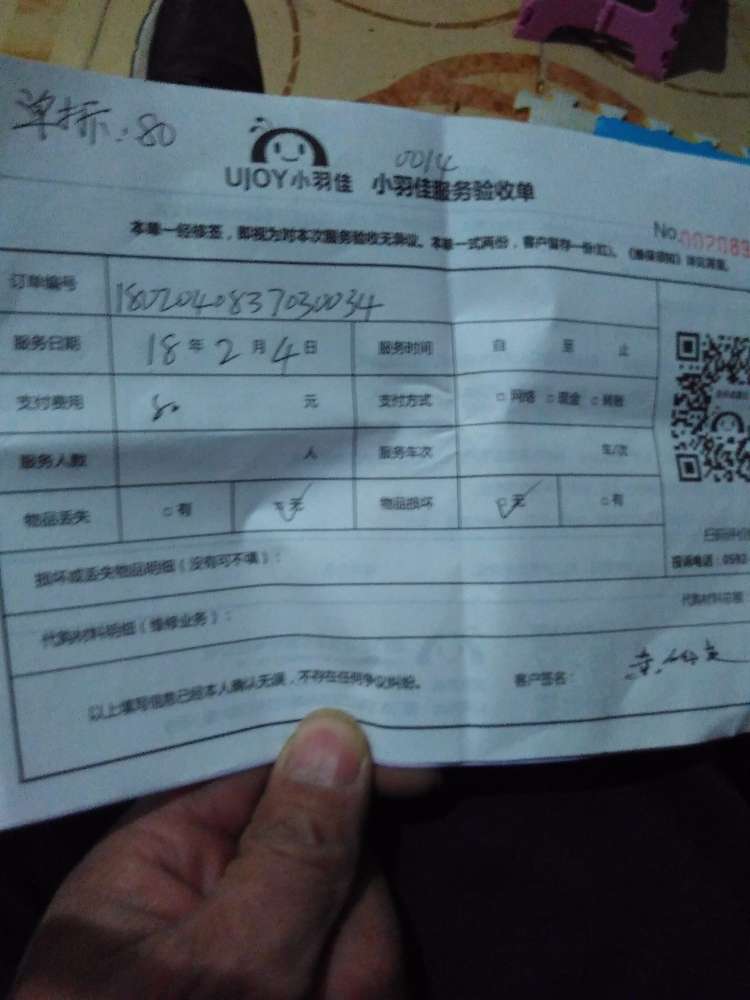 单拆:80
0014
UJOY小羽佳 小羽佳服务验收单
No.002083
本单一经修签，即视为对本次服务验收无异议。本单一式两份，客户留存一份(红)。《维保须知》详见背面。
订单编号 1802040837030034
服务日期 18年2月4日 服务时间 自 至 止
支付费用 80 元 支付方式 □网络 □现金 □转账
服务人数 人 服务车次 车/次
物品丢失 □有 □无 物品损坏 □无 □有
扫码评价
投诉电话：0592-
损坏或丢失物品明细（没有可不填）：
代购材料明细（维修业务）： 代购材料总额
以上填写信息已经本人确认无误，不存在任何争议纠纷。 客户签名：